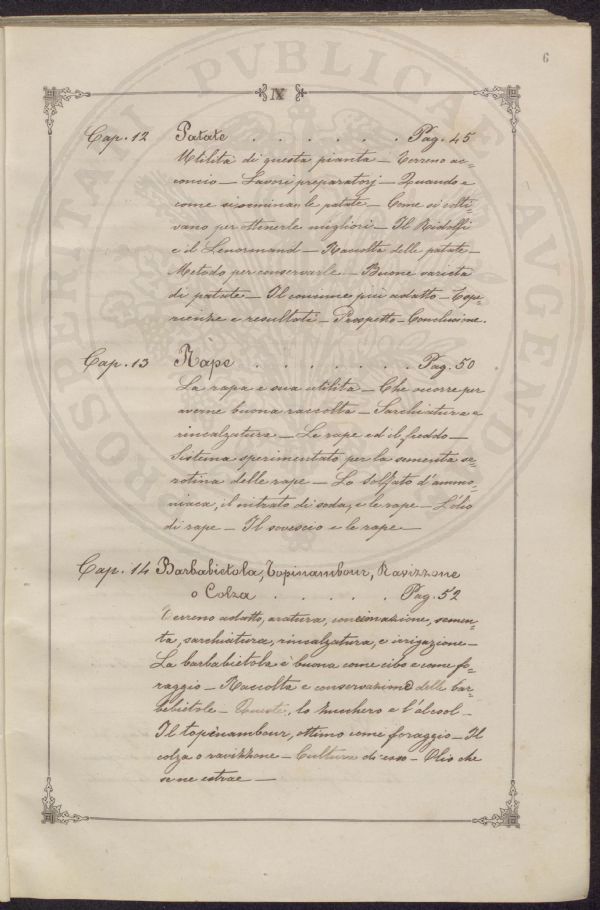 6
IV
Cap. 12 Patate . . . . . . Pag. 45
Utilità di questa pianta — Terreno ac=
concio — Lavori preparatorj — Quando e
come si seminan le patate — Come si colti=
vano per ottenerle migliori — Il Ridolfi
e il Lenormand — Raccolta delle patate —
Metodo per conservarle — Buone varietà
di patate — Il concime più adatto — Espe=
rienze e resultati — Prospetto — Conclusione.
Cap. 13 Rape . . . . . . . Pag. 50
La rapa e sua utilità — Che occorre per
averne buona raccolta — Sarchiatura e
rincalzatura — Le rape ed il freddo —
Sistema sperimentato per la sementa se=
rotina delle rape — Lo solfato d'ammo=
niaca, il nitrato di soda, e le rape — L'olio
di rape — Il sovescio e le rape —
Cap. 14 Barbabietola, Topinambour, Ravizzone
o Colza . . . . . Pag. 52
Terreno adatto, aratura, concimazione, semen=
ta, sarchiatura, rincalzatura, e irrigazione —
La barbabietola è buona come cibo e come fo=
raggio — Raccolta e conservazione delle bar=
bebietole — lo zucchero e l'alcool —
Il topinambour, ottimo come foraggio — Il
colza o ravizzone — Cultura di esso — Olio che
se ne estrae —
PROSPERITATI PVBLICAE AVGENDAE